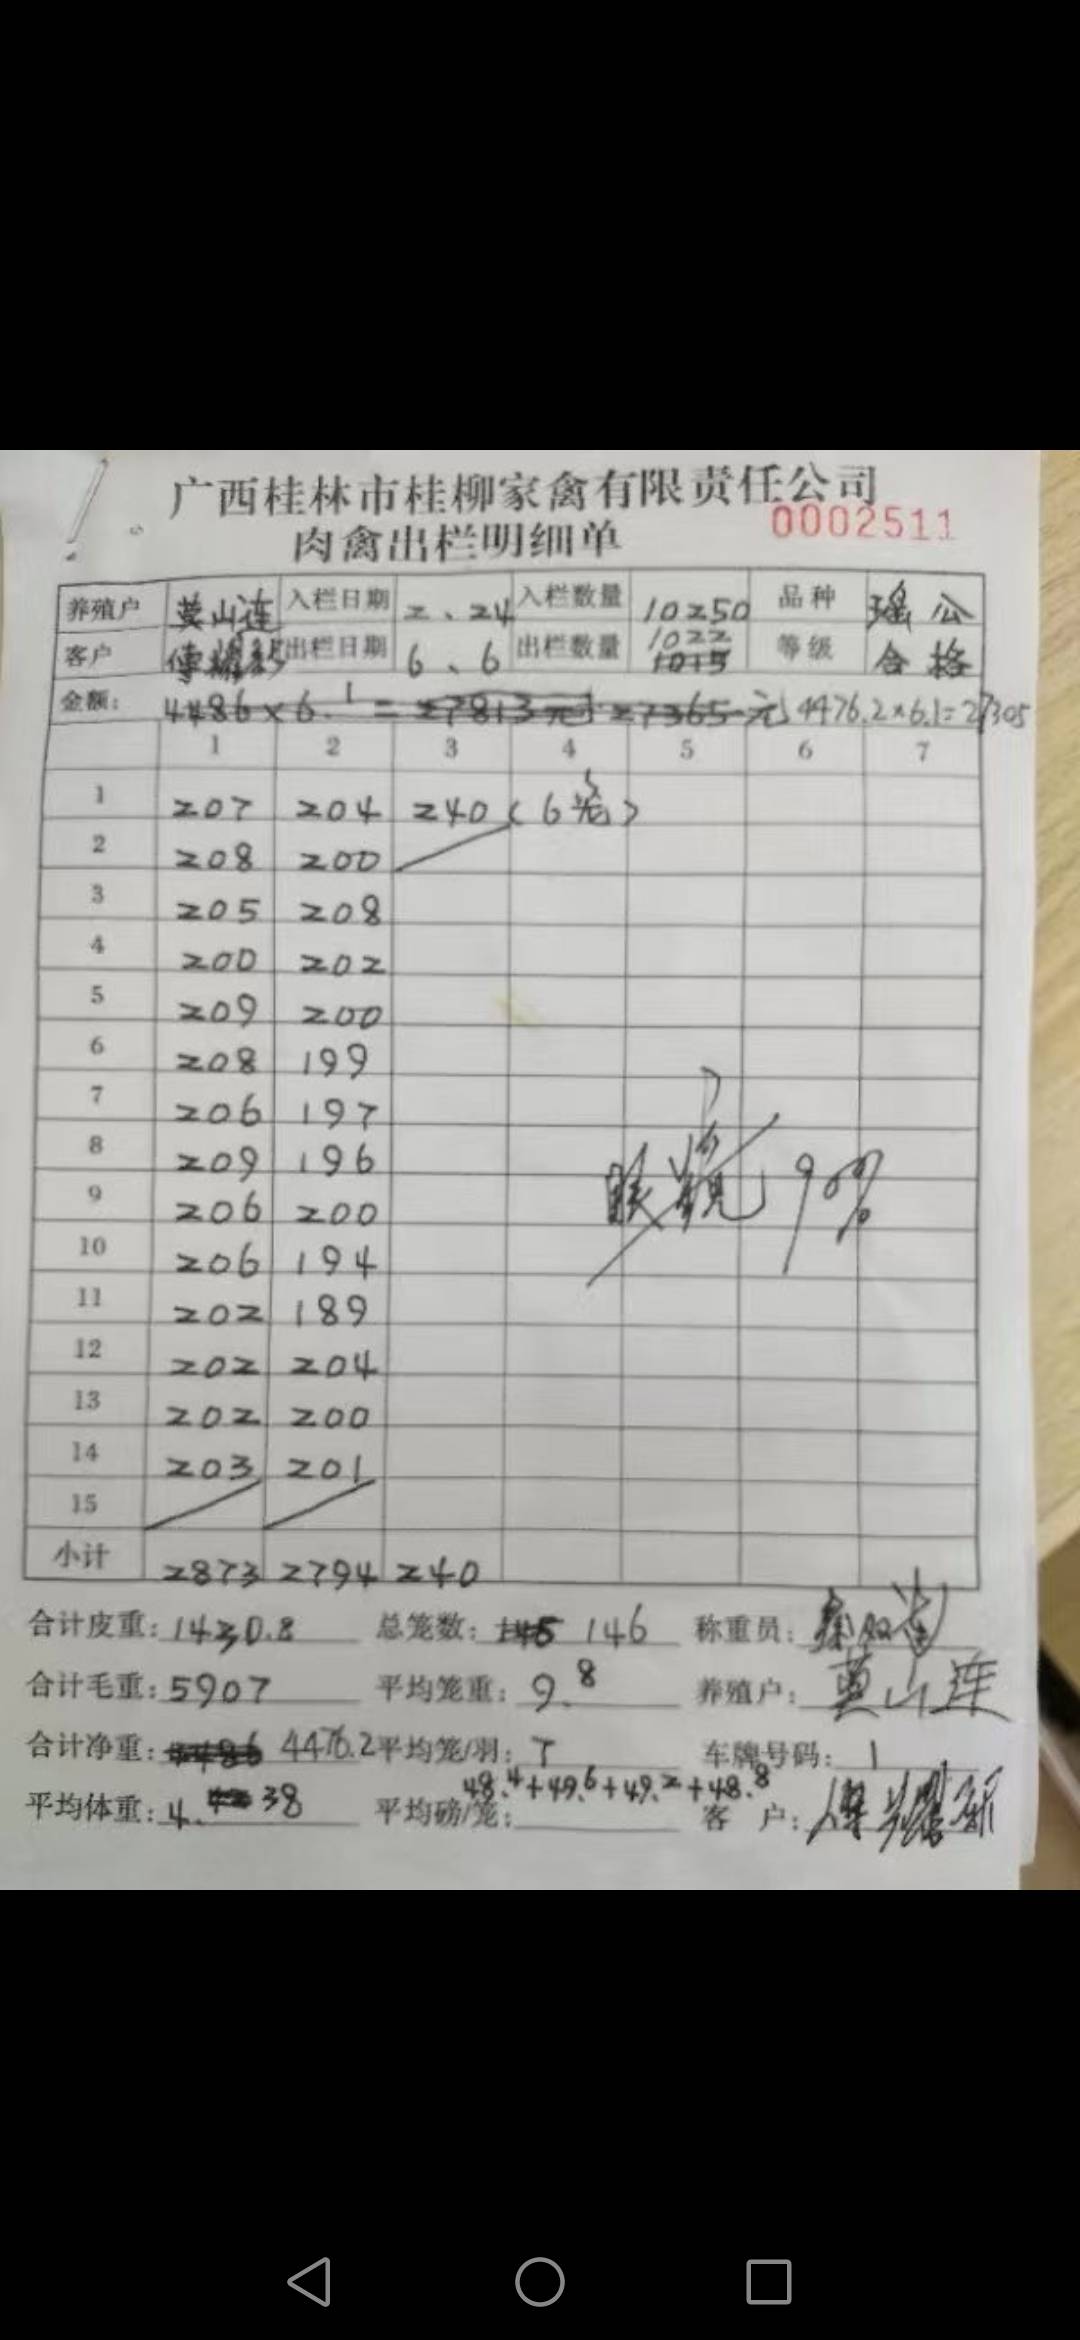 广西桂林市桂柳家禽有限责任公司
肉禽出栏明细单 0002511
养殖户 莫山连 入栏日期 2、24 入栏数量 10250 品种 瑶公
客户 出栏日期 6、6 出栏数量 1022 1015 等级 合格
金额: 4486×6.1=27813元 27365元 4476.2×6.1=27305
1 2 3 4 5 6 7
1 207 204 240(6笼)
2 208 200
3 205 208
4 200 202
5 209 200
6 208 199
7 206 197
8 209 196
9 206 200
10 206 194
11 202 189
12 202 204
13 202 200
14 203 201
15
90%
小计 2873 2794 240
合计皮重:1430.8 总笼数:145 146 称重员:
合计毛重:5907 平均笼重:9.8 养殖户:莫山连
合计净重:4486 4476.2 平均笼/羽:7 车牌号码:1
48.4+49.6+49.2+48.8
平均体重:4.38 平均磅/笼: 客 户: